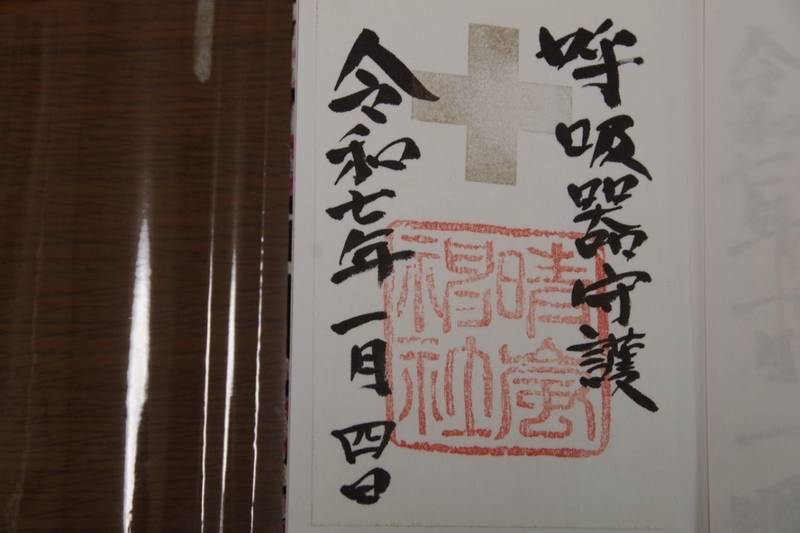 呼吸器守護
令和七年一月四日
晴嵐
社